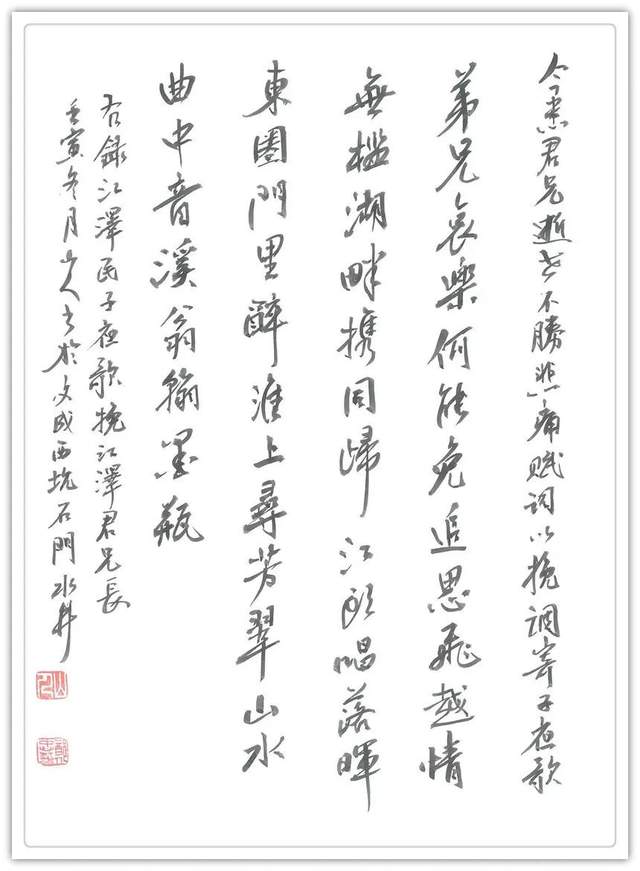 今悉君兄逝世不勝悲痛賦詞以挽調寄子夜歌
弟兄哀樂何能免追思飛越情
無檻湖畔攜同歸江頭唱落暉
東圈門里醉淮上尋芳翠山水
曲中音溪翁翰墨瓶
右錄江澤民子夜歌挽江澤君兄長
壬寅冬月山人書於文成西坑石門水井